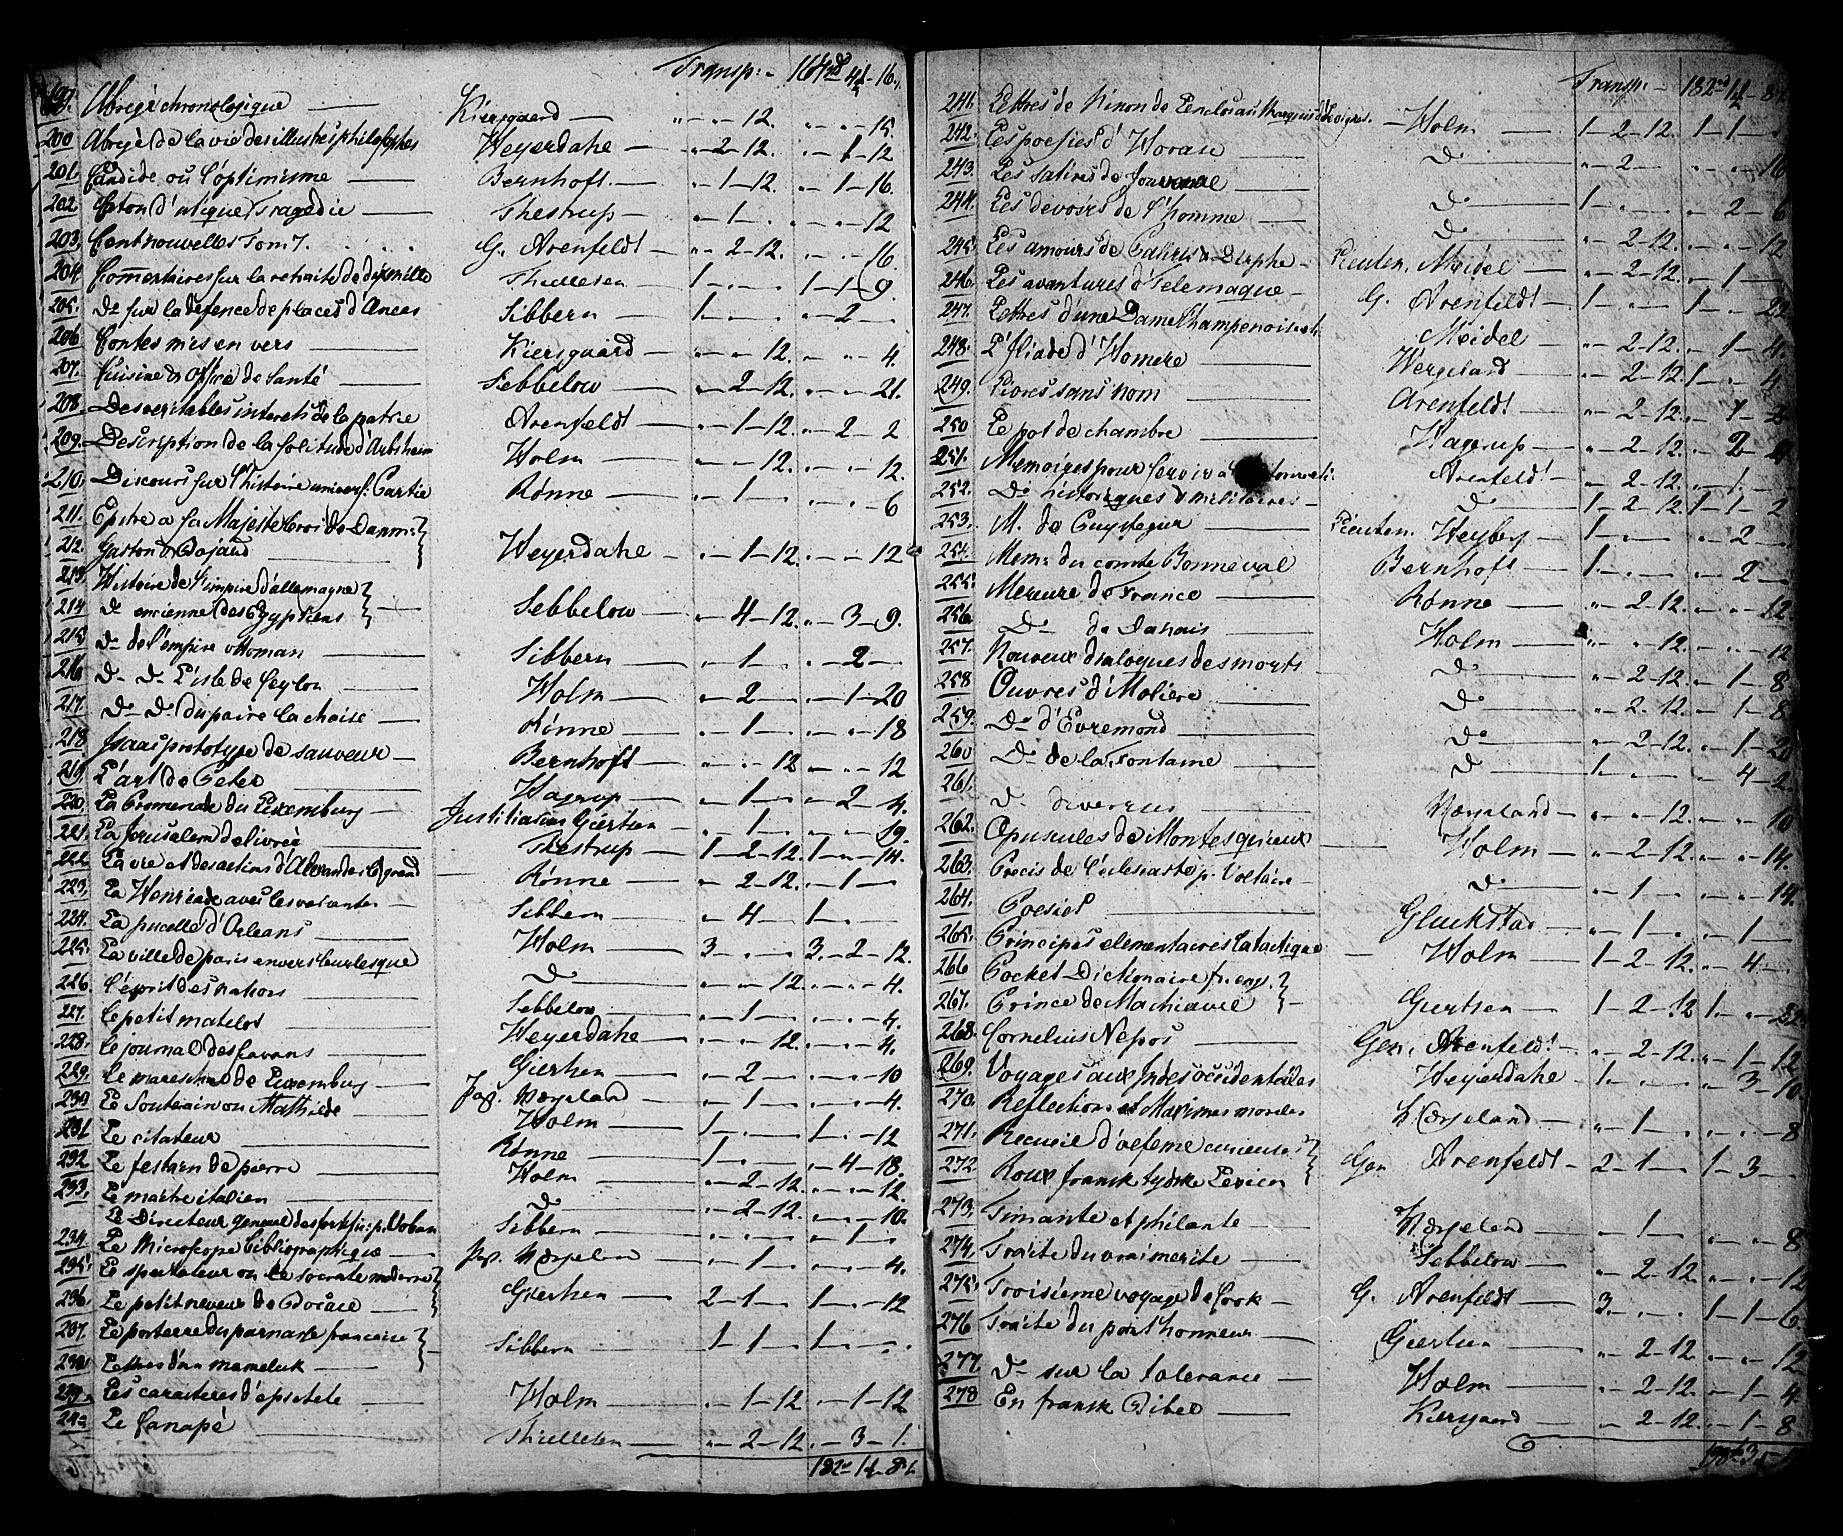 Transp: - 164rd 4 - 16
199. Abregé chronologique — Kiersgaard — " - " - 12. " - " - 15.
200 Abregé de la vie des illustres philosophes Heyerdahl — " - 2 - 12. " - 1 - 12
201. Candide ou l'optimisme — Bernhoft. — " - 1 - 12. " - 1 - 16.
202 Caton d'utique Tragedie — Thestrup — " - 1 - " " - " - 12
203. Cent nouvelles Tom 7. G. Arenfeldt — " - 2 - 12. " - " - 16.
204. Commentaires sur la retraite de dix mille Thillesen 1 - " - 1 - 1 - 9.
205. Do sur la defence de places d'Ancees Sibbern — 1. - " - " - 2 -
206 Contes mis en vers — Kiersgaard — " - " - 12. " - " - 4.
207. Cuisine & office de Santé — Sebbelow — " - 2 - 12. " - " - 21.
208. Des veritables interets de la patrie Arenfeldt — " - 1 - 12. " - 2 - 2
209. Description de la solitude d'Arlsheim Holm — " - " - 12. " - " - 12.
210. Discours sur l'histoire univers: Partie Rønne — " - 1 - " - " - 6
211. Epitre a sa Majeste le roi de Danm:
212. Gaston & Bajard — Heyerdahl — " - 1 - 12. " - " - 12
213. Histoire de l'empire d'allemagne
214 Do ancienne des Egyptiens — Sebbelow — " - 4 - 12. " - 3 - 9.
215. Do de l'empire ottoman — Sibbern — " - 1 - " - 2 -
216. Do Do l'isle de Ceylon — Holm — " - 2 - " - 1 - 20
217. Do Do du paire la chaise — Rønne — " - 1 - " - " - 18
218 Isaac prototype de sauveur — Bernhoft — " - " - 12 " - " - 12
219. L'art de Peter — Hagrup — " - 1 - " - 2 - 4.
220. La Promenade du Luxemburg — Justitiarius Giertsen — " - 1 - " - " - 19.
221. La Jerusalem delivrée — Thestrup — 1 - 2 - 12. 1 - " - 14.
222. La vie et des actions d'Alexandre le grand — Rønne — " - 2 - 12. " - 1 -
223. La Henriade avec les variantes — Sibbern — " - 4 - 1 - " -
224. La pucelle d'Orleans — Holm — 3 - " - 3. - 2 - 12.
225. La ville de paris en vers burlesque Do — " - " - 12. " - " - 4.
226 L'esprit des nations — Sebbelow — " - 1 - " - " - 4.
227. Le petit matelot — Heyerdahl — " - " - 12. " - " - 4.
228. Le journal des savans — Giertsen — " - 2 - " - " - 10
229. Le mareschal de Luxemburg — Jag. Wergeland — " - 1 - " - " - 4.
230. Le Souterain ou Mathilde — Holm — 1 - " - 1 - " - 12
231 Le citateur — Rønne — 1. - " - " - 4 - 18.
232 Le festien de pierre — Holm — " - 2 - 12. " - " - 12.
233. Le maitre italien — Do — " - 2 - 12. " - " - 10.
Le Directeur general des fortific: p. Voban Sibbern — " - " - " - 1 -
234. Le Microscope bibliographique — Jag. Wergeland — " - 1 - " - " - 4.
235. Le spectateur ou le socrate moderne
236. Le petit neveu de Bocace — Giertsen — 2 - 1 - 1 - " - 12
237. Le porterre du parnasse francaise
238. Lettres d'un mameluk — Sibbern — 1 - 1 1 - " - " .
239. Les caracteres d'epictete — Holm — " - 1 - 12 " - 1 - 12
240 Le Canapé — Thillesen — " - 2 - 12. " - 3 - 1.
182rd 1 - 8
Transp: - 182rd 1 - 8
241. Lettres de Ninon de Lenclos au Marquis de Sevigné. — Holm — 1 - 2 - 12. 1 - 1 -
242. Les poesies d'Horace — Do — " - 2 - " - " - 16
243. Les satires de Jouvenal — Do — 1 - " - " - 2 - 6
244. Les devoirs de l'homme — Do — " - 2 - 12. " - " - 12
245. Les amours de — Lieuten. Meidel — " - 2 - 12. " - 1 -
246. Les avantures d'Telemaque — G. Arenfeldt — 1. - " - 1. - " - 22
247. Lettres d'une Dame Champenoise Meidel — " - 2 - 12. " - 1 - 4.
248. L'Iliade d'Homere — Wergeland — " - 2 - 12. 1 - " - 4
249. Livres sans nom — Arenfeldt — " - 2 - 12. " - 1 -
250 Le pot de chambre — Hagerup — " - 2 - 12. " - 2 -
251. Memoires pour servir a Arenfeldt — " - 2 - 12. " - 1 -
252. Do historiques & militaires — Do — 1 - 2 - 12. 1 - 1 - 2
253. M. de Guystegier — Lieuten. Heyberg — 1 - " - " - 2 -
254. Mem: du comte Bonneval — Bernhoft — 1. - " - " - 2 -
255. Mercure de France — Rønne — " - 2 - 12. " - " - 12.
256. Do de Danois — Holm — " - " - 12. " - " - 12
257. Nouveux dialogues des morts — Do — " - 2 - 12. " - 1 - 8
258 Ouvres d'Moliere — Do — " - 2 - 12. " - 1 - 8
259. Do d'Evremond — Do — " - 2 - 12. " - 1 - 20
260 Do de la Fontaine — Do — 1. - " - " - 4 - 2
261. Do diverses — Wergeland — " - " - 12. " - " - 10
262. Opuscules de Montesquieux — Holm — " - 2 - 12. " - " - 14.
263. Precis de l'eclesiaste p. Voltaire — Do — " - 1 - " - " - 14.
264. Poesies — Gluckstad — " - 1 - " - 1 -
265. Principes elementaires la tactique — Holm — 1 - 2 - 12. " - 4 -
266 Pocket - Dictionaire fr. eng.
267. Prince de Machiavel — Giertsen — 1 - 2 - 12 1. - " - 22
268. Cornelius Nepos — Gen. Arenfeldt — " - 2 - 12. " - 1 - 12
269. Voyages aux Indes occidentales Heyerdahl — 1. - " - " - 3 - 10
270. Reflections et Maximes morales Wergeland — " - 1 - " - " - 8
271. Recueil d'
272 Roux fransk tydske Lexicon — Gen Arenfeldt — 2 - 1 - 1 - 3 -
273. Timante et philante — Wergeland — " - 1 - " - " - 8
274. Traite du vrai merite — Sebbelow — " - 2 - 12. " - " - 12
275. Troisième voyage de Cook — G. Arenfeldt — 3. - " - 1 - 1 - 6
276 Traite du point honneur — Giertsen — " - 2 - 12 " - " - 12
277. Do sur la tolerance — Holm — " - 2 - 12. " - 1 - 4
278 En fransk Bibel — Kiersgaard — " - 2 - 12. " - 1 - 8.
198